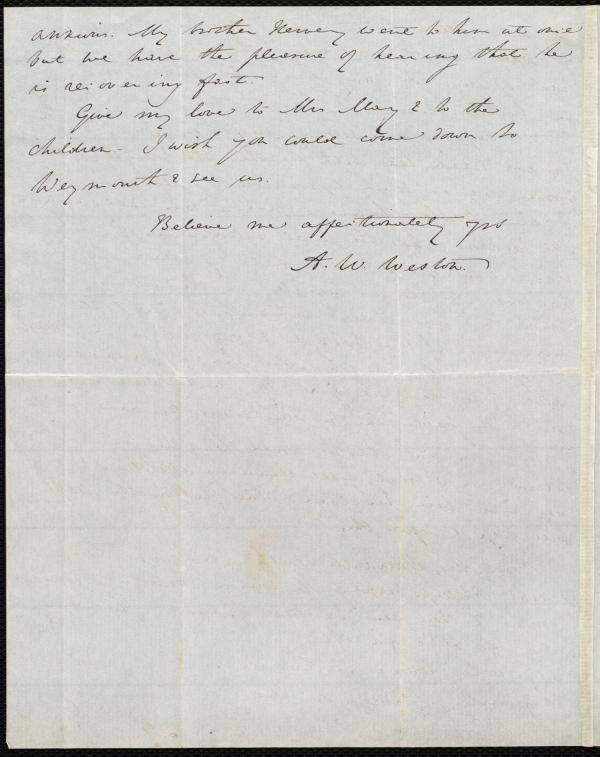 anxious. My brother Hervey went to him at once
but we have the pleasure of hearing that he
is recovering fast.
Give my love to Mrs May & to the
children - I wish you could come down to
Weymouth & see us.
Believe me affectionately yrs
A. W. Weston.